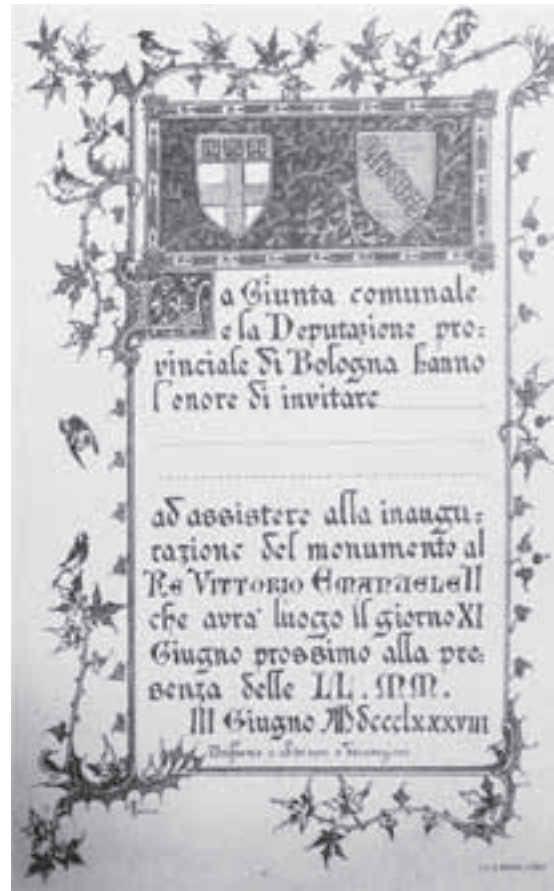 La Giunta comunale
e la Deputazione pro-
vinciale di Bologna hanno
l'onore di invitare
ad assistere alla inaugu-
razione del monumento al
Re VITTORIO EMANUELE II
che avra' luogo il giorno XI
Giugno prossimo alla pre-
senza delle LL. MM.
III Giugno MDccclxxxviii